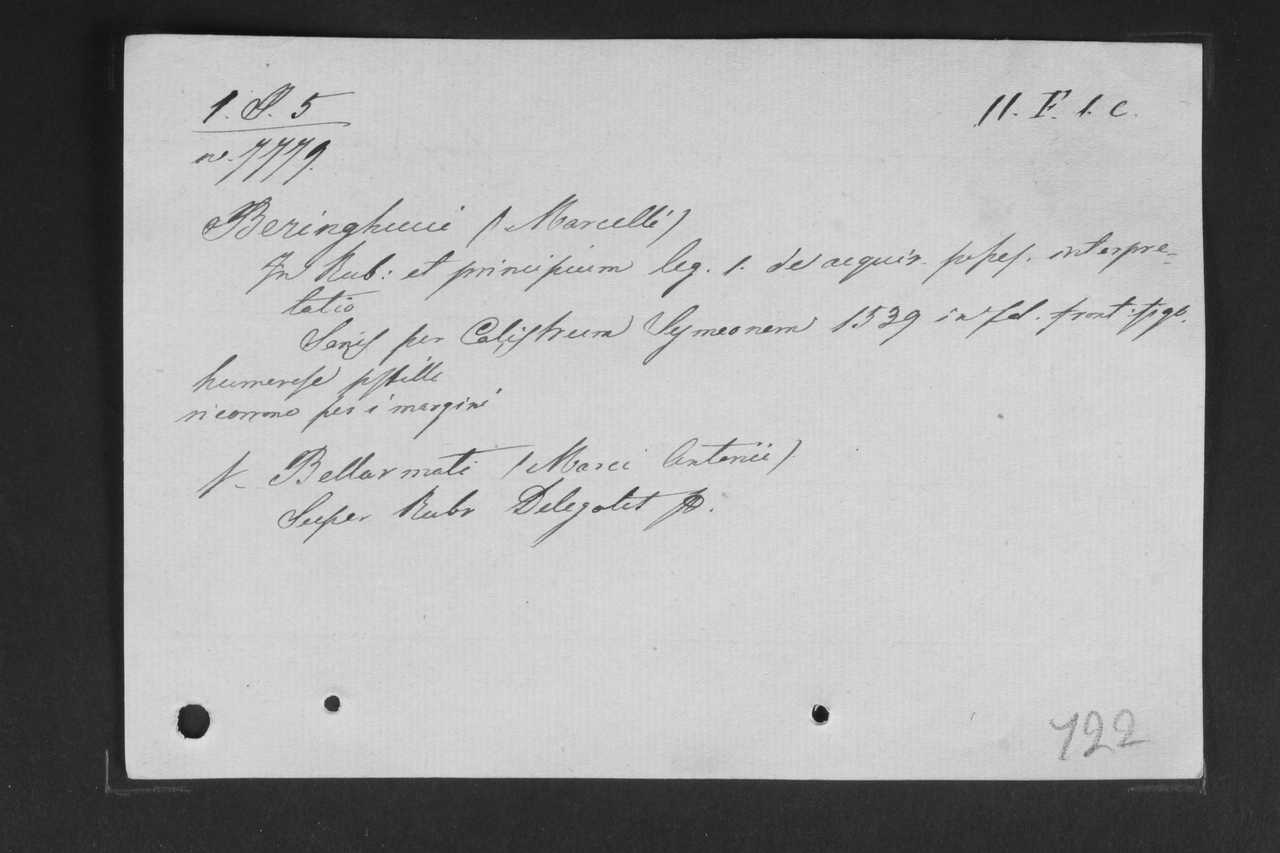 1. S. 5
11. F. 1. c.
no. 7779.
Beringhucii (Marcelli)
In Rub: et principium leg. 1. de acquir. posses. interpre=
tatio
Senis per Calistrum Symeonem 1539 in fol. front. figt.
numerose postille
ricorrono per i margini
f- Bellarmati (Marci Antonii)
Super Rubr Delegatis
122